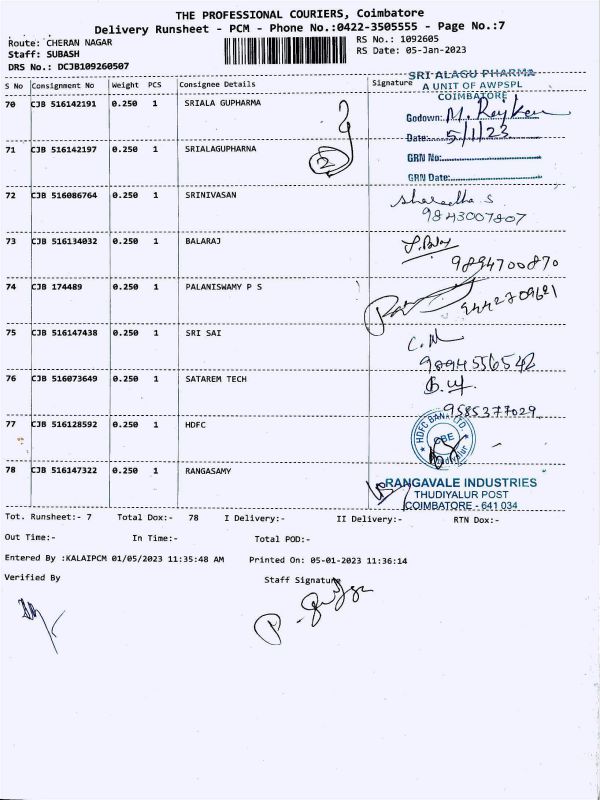 THE PROFESSIONAL COURIERS, Coimbatore
Delivery Runsheet - PCM - Phone No.:0422-3505555 - Page No.:7
Route: CHERAN NAGAR
RS No.: 1092605
Staff: SUBASH
RS Date: 05-Jan-2023
DRS No.: DCJB109260507
S No Consignment No Weight PCS Consignee Details Signature
SRI ALAGU PHARMA
A UNIT OF AWPSPL
COIMBATORE
70 CJB 516142191 0.250 1 SRIALA GUPHARMA
Godown: M.
Date: 5/1/23
71 CJB 516142197 0.250 1 SRIALAGUPHARNA
2
GRN No:
GRN Date:
72 CJB 516086764 0.250 1 SRINIVASAN
9843007807
73 CJB 516134032 0.250 1 BALARAJ
9894700870
74 CJB 174489 0.250 1 PALANISWAMY P S
9442709621
75 CJB 516147438 0.250 1 SRI SAI
9894556542
76 CJB 516073649 0.250 1 SATAREM TECH
9585377029
77 CJB 516128592 0.250 1 HDFC
HDFC BANK LTD.
CBE
78 CJB 516147322 0.250 1 RANGASAMY
RANGAVALE INDUSTRIES
THUDIYALUR POST
COIMBATORE - 641 034
Tot. Runsheet:- 7 Total Dox:- 78 I Delivery:- II Delivery:- RTN Dox:-
Out Time:- In Time:- Total POD:-
Entered By :KALAIPCM 01/05/2023 11:35:48 AM Printed On: 05-01-2023 11:36:14
Verified By Staff Signature